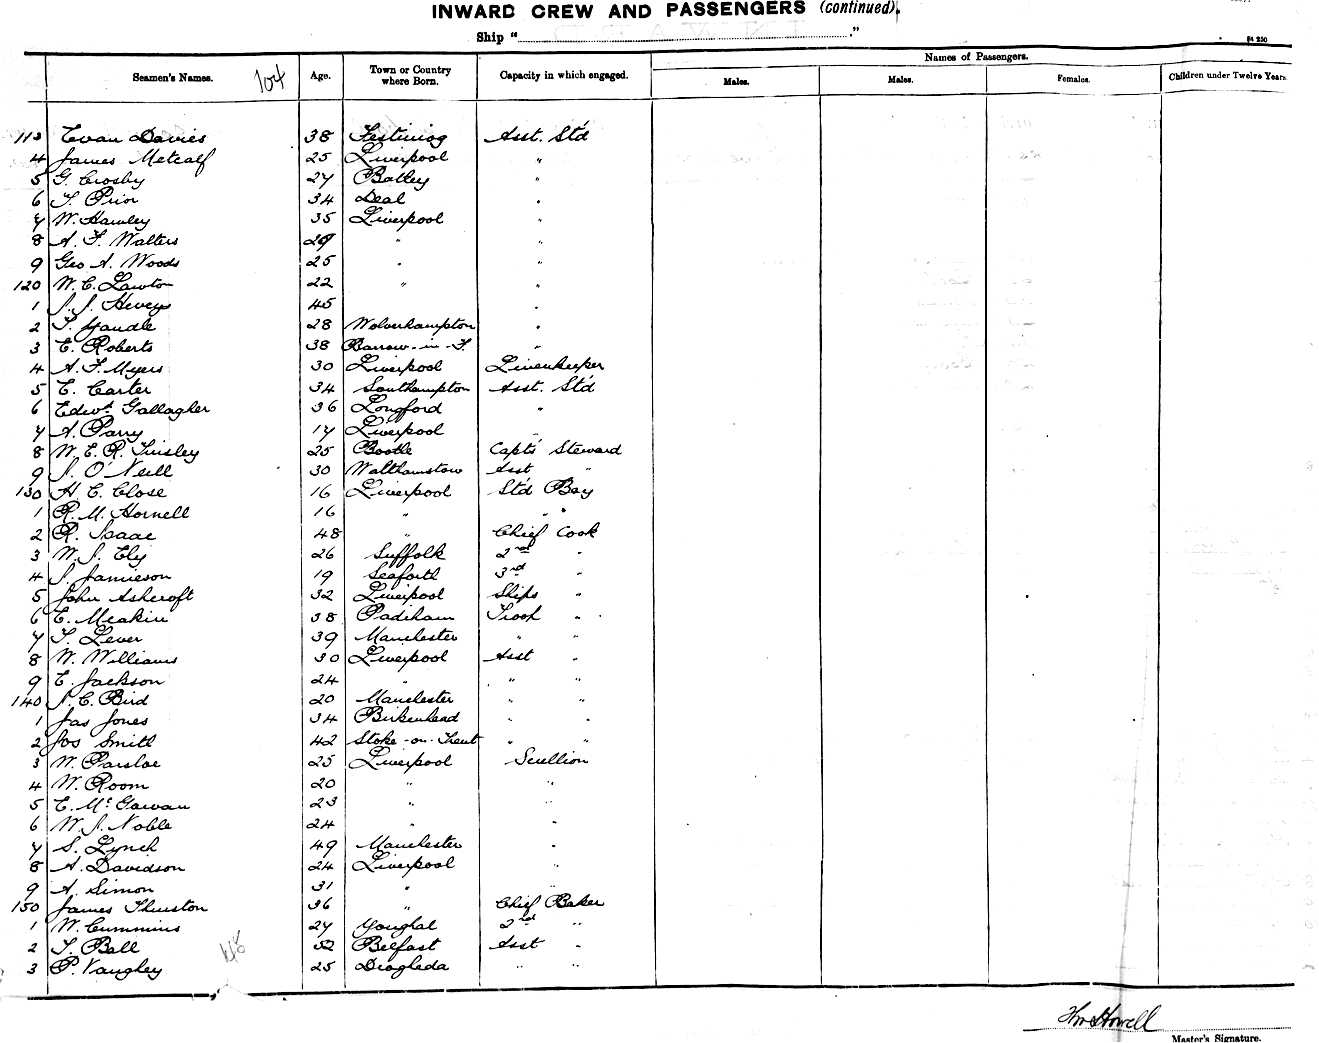 INWARD CREW AND PASSENGERS (continued).
Ship "
"
Names of Passengers.
Seamen's Names. 104 Age. Town or Country where Born. Capacity in which engaged. Males. Males. Females. Children under Twelve Years.
113 Evan Davies 38 Festiniog Asst. Std
4 James Metcalf 25 Liverpool "
5 G. Crosby 27 Batley "
6 T. Prior 34 Deal "
7 W. Hawley 35 Liverpool "
8 A. F. Walters 29 " "
9 Geo A. Woods 25 " "
120 W. C. Lawton 22 " "
1 J. J. Heveys 45 "
2 T. Yandle 28 Wolverhampton "
3 E. Roberts 38 Barrow-in-F. "
4 A. F. Myers 30 Liverpool Linenkeeper
5 E. Carter 34 Southampton Asst. Std
6 Edwd Gallagher 36 Longford "
7 A. Parry 17 Liverpool "
8 W. E. R. Tinsley 25 Bootle Capts' Steward
9 J. O'Neill 30 Walthamstow Asst "
130 H. C. Close 16 Liverpool Std Boy
1 R. M. Hornell 16 " " "
2 R. Isaac 48 " Chief Cook
3 W. J. Ely 26 Suffolk 2nd "
4 J. Jamieson 19 Seaforth 3rd "
5 John Ashcroft 32 Liverpool Ships "
6 E. Meakin 38 Padiham Troop "
7 T. Lever 39 Manchester " "
8 W. Williams 30 Liverpool Asst "
9 E. Jackson 24 " " "
140 J. C. Bird 20 Manchester " "
1 Jas Jones 34 Birkenhead " "
2 Jos Smith 42 Stoke-on-Trent " "
3 W. Parsloe 25 Liverpool Scullion
4 W. Room 20 " "
5 E. McGowan 23 " "
6 W. J. Noble 24 " "
7 S. Lynch 49 Manchester "
8 A. Davidson 24 Liverpool "
9 A. Simon 31 " "
150 James Thurston 36 " Chief Baker
1 W. Cummins 27 Youghal 2nd "
2 T. Ball 52 Belfast Asst "
3 P. Vaugley 25 Drogheda " "
Wm Howell
Master's Signature.